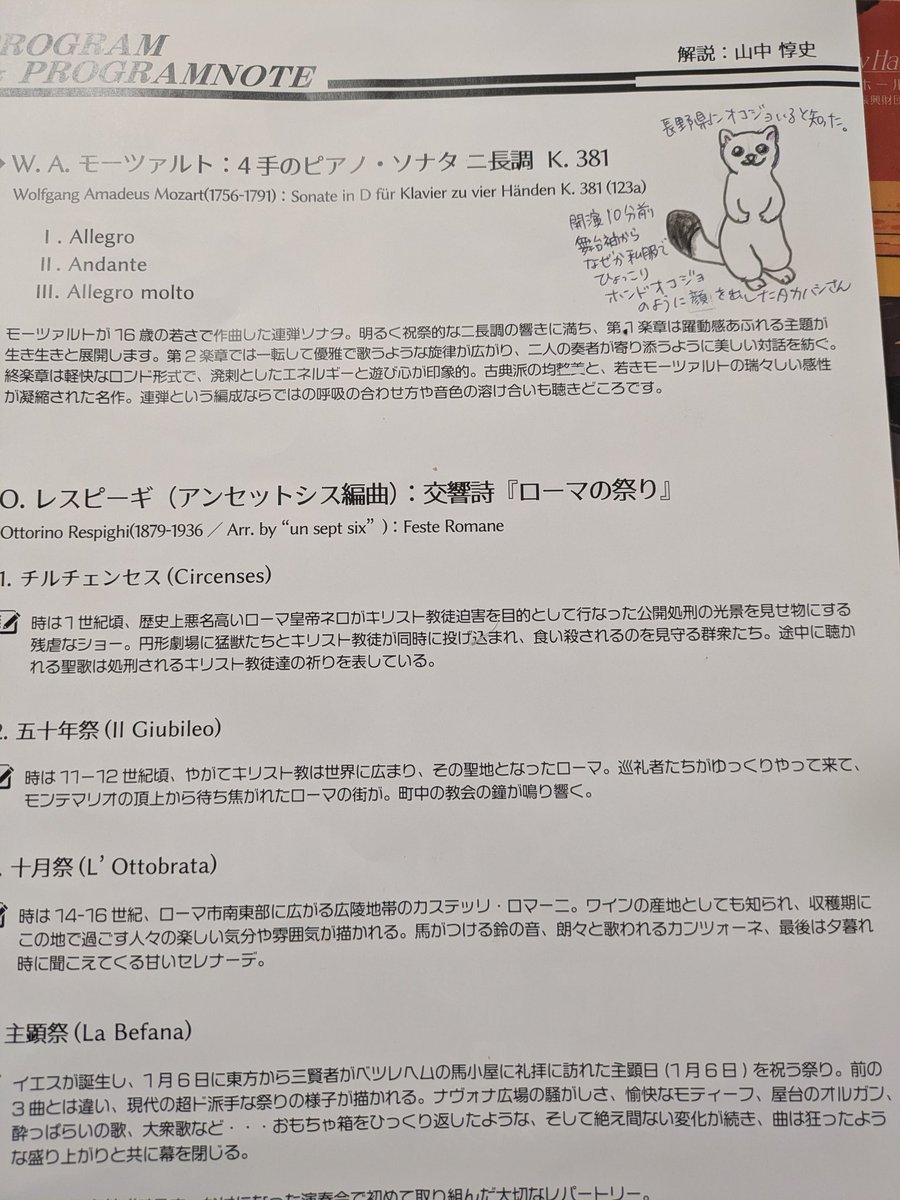 ROGRAM
PROGRAMNOTE
解説：山中 惇史
長野県にオコジョいると知った。
W. A. モーツァルト：4手のピアノ・ソナタ ニ長調 K. 381
Wolfgang Amadeus Mozart(1756-1791)：Sonate in D für Klavier zu vier Händen K. 381 (123a)
I . Allegro
II . Andante
III. Allegro molto
開演10分前
舞台袖から
なぜか私服で
ひょっこり
ホンドオコジョ
のように顔を出したタカハシさん
モーツァルトが 16 歳の若さで作曲した連弾ソナタ。明るく祝祭的な二長調の響きに満ち、第1楽章は躍動感あふれる主題が
生き生きと展開します。第2楽章では一転して優雅で歌うような旋律が広がり、二人の奏者が寄り添うように美しい対話を紡ぐ。
終楽章は軽快なロンド形式で、溌剌としたエネルギーと遊び心が印象的。古典派の均整美と、若きモーツァルトの瑞々しい感性
が凝縮された名作。連弾という編成ならではの呼吸の合わせ方や音色の溶け合いも聴きどころです。
O. レスピーギ（アンセットシス編曲）：交響詩『ローマの祭り』
Ottorino Respighi(1879-1936 ／ Arr. by “un sept six” )：Feste Romane
1. チルチェンセス (Circenses)
時は1世紀頃、歴史上悪名高いローマ皇帝ネロがキリスト教徒迫害を目的として行なった公開処刑の光景を見せ物にする
残虐なショー。円形劇場に猛獣たちとキリスト教徒が同時に投げ込まれ、食い殺されるのを見守る群衆たち。途中に聴か
れる聖歌は処刑されるキリスト教徒達の祈りを表している。
2. 五十年祭 (Il Giubileo)
時は11－12世紀頃、やがてキリスト教は世界に広まり、その聖地となったローマ。巡礼者たちがゆっくりやって来て、
モンテマリオの頂上から待ち焦がれたローマの街が。町中の教会の鐘が鳴り響く。
. 十月祭 (L’ Ottobrata)
時は14-16世紀、ローマ市南東部に広がる広陵地帯のカステッリ・ロマーニ。ワインの産地としても知られ、収穫期に
この地で過ごす人々の楽しい気分や雰囲気が描かれる。馬がつける鈴の音、朗々と歌われるカンツォーネ、最後は夕暮れ
時に聞こえてくる甘いセレナーデ。
主顕祭 (La Befana)
イエスが誕生し、1月6日に東方から三賢者がベツレヘムの馬小屋に礼拝に訪れた主顕日（1月6日）を祝う祭り。前の
3曲とは違い、現代の超ド派手な祭りの様子が描かれる。ナヴォナ広場の騒がしさ、愉快なモティーフ、屋台のオルガン、
酔っぱらいの歌、大衆歌など・・・おもちゃ箱をひっくり返したような、そして絶え間ない変化が続き、曲は狂ったよう
な盛り上がりと共に幕を閉じる。
なった演奏会で初めて取り組んだ大切なレパートリー。